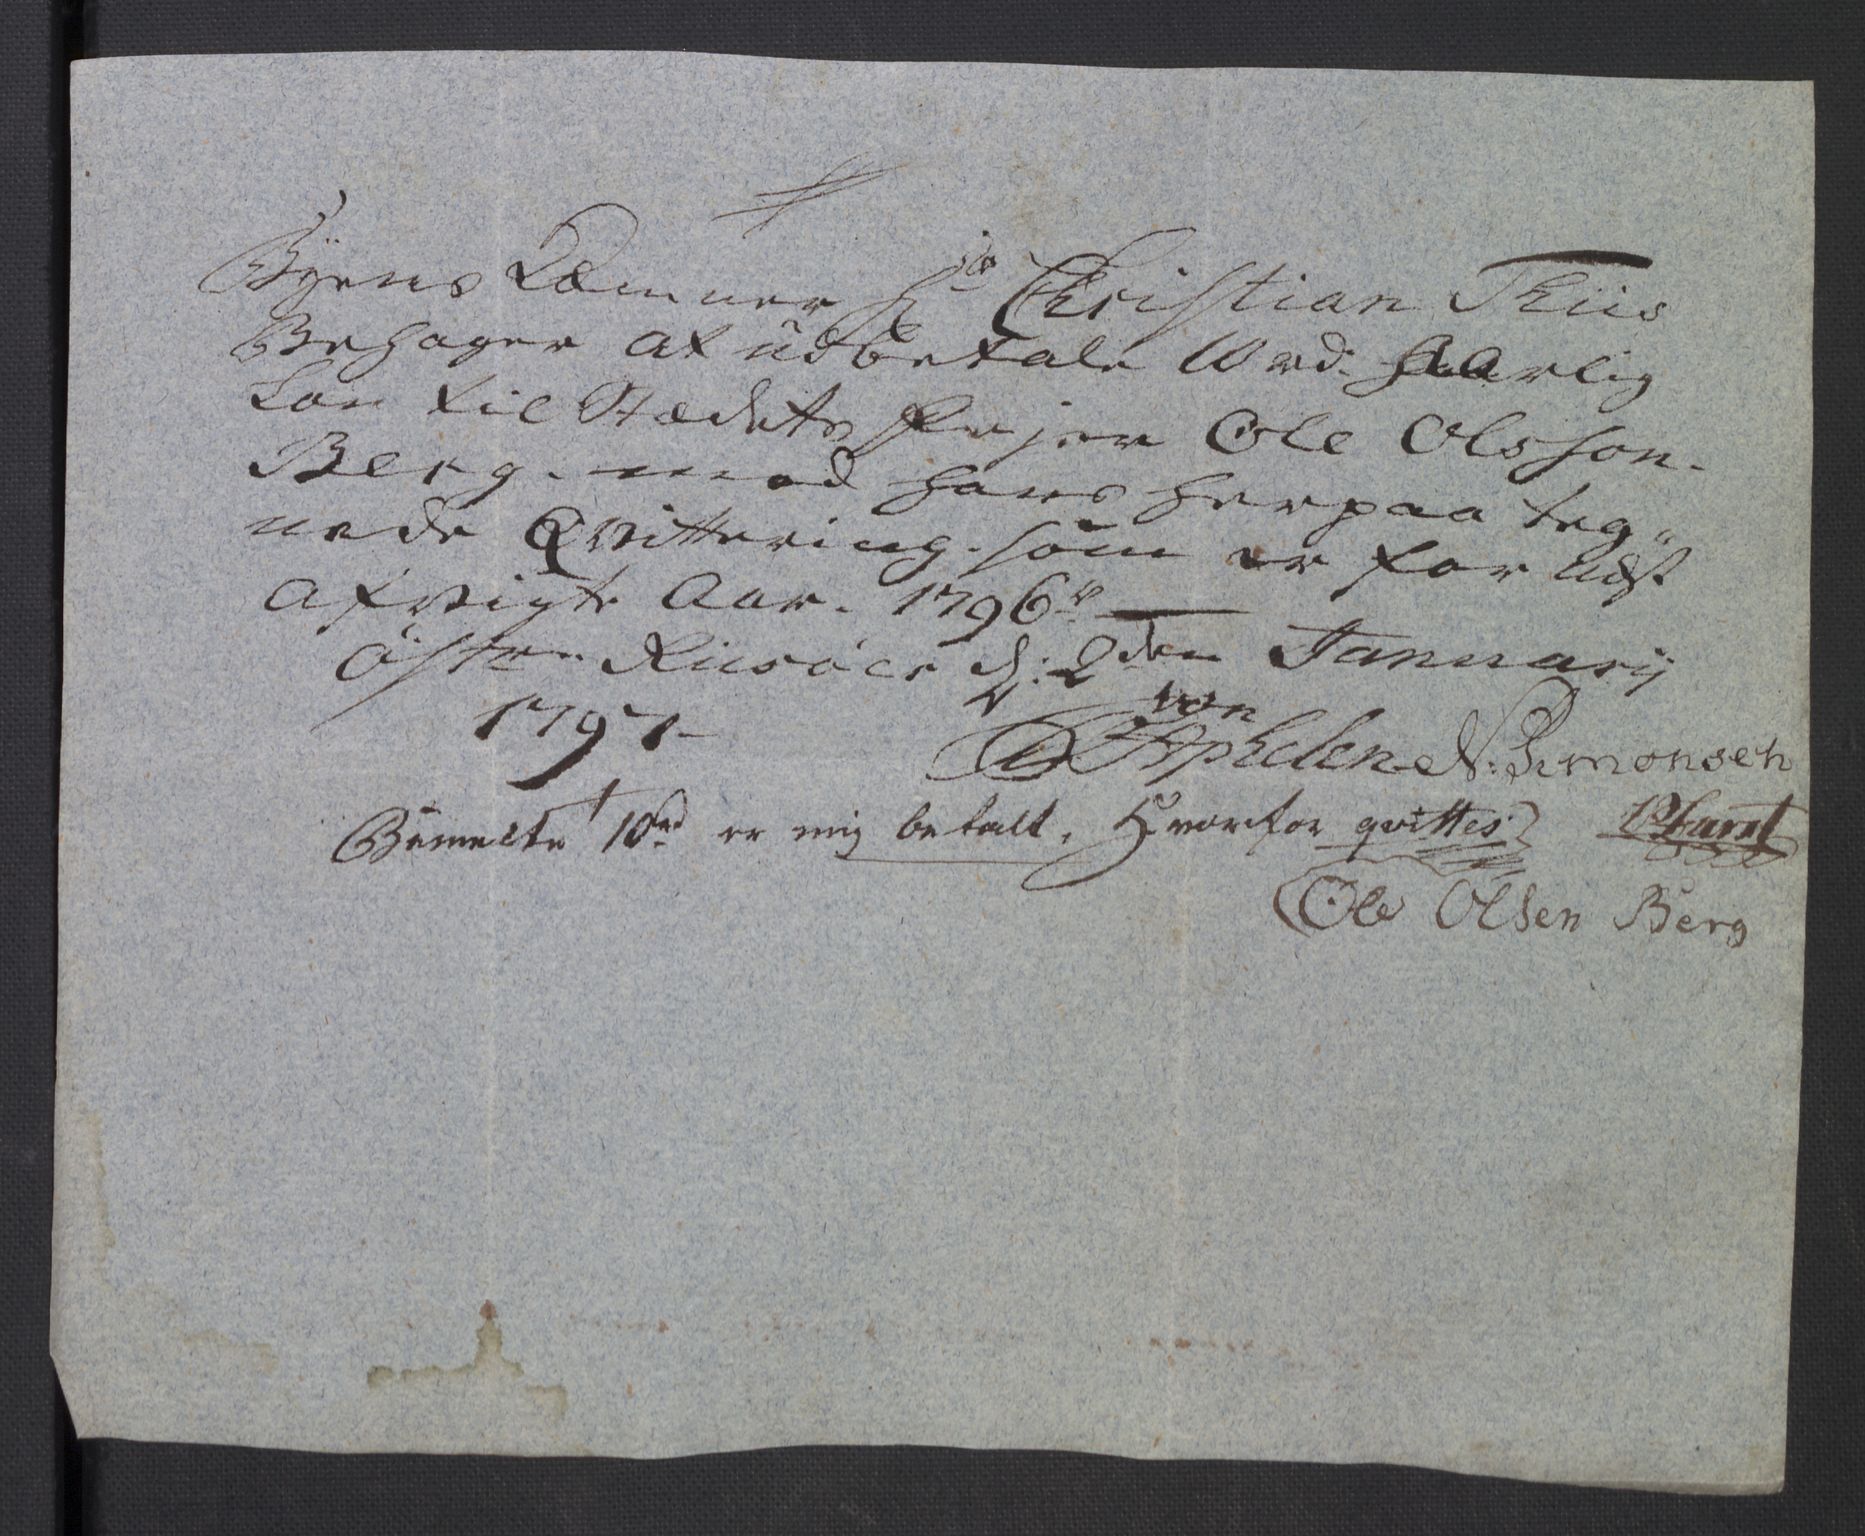 Byens Kæmner Hr Christian Thiis
Behager at udbetale 10 rd. Aarlig
Løn til Stædets Feÿer Ole Olsson
Berg. mod hans herpaa teg„
nede Qvittering. som er for Udst
afvigte Aar. 1796 —
Öster Riisöer d: 2den Januarij
1797 —
von Aphelen N: Simonsen
Bemelte 10 rd er mig betalt, Hvorfor qvittes
Ole Olsen Berg